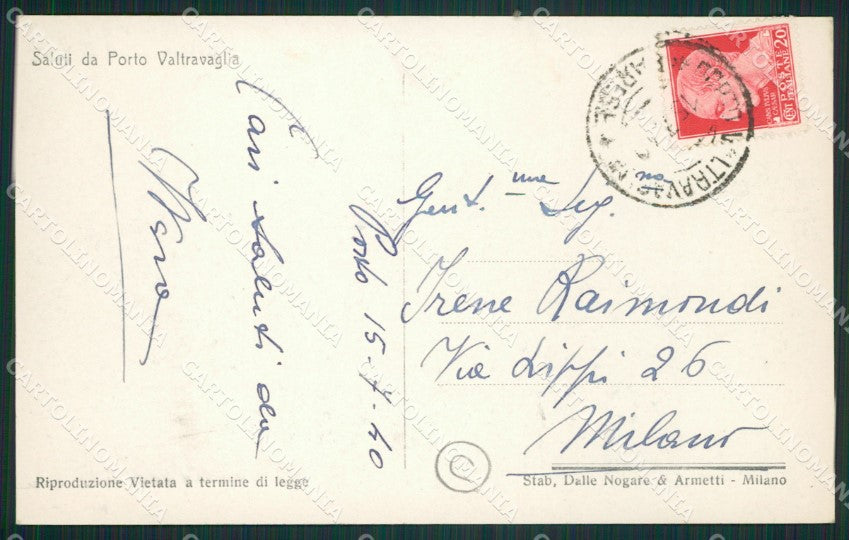 Saluti da Porto Valtravaglia
Cari saluti da
Porto 15-7-40
Gent.ma Sig.na
Irene Raimondi
Via Lippi 26
Milano
Riproduzione Vietata a termine di legge
Stab. Dalle Nogare & Armetti - Milano
POSTE ITALIANE
20
CENT
CARTOLINOMANIA